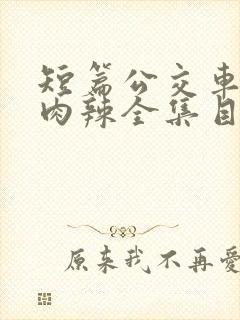 短篇公交车
肉辣全集目
原来我不再爱